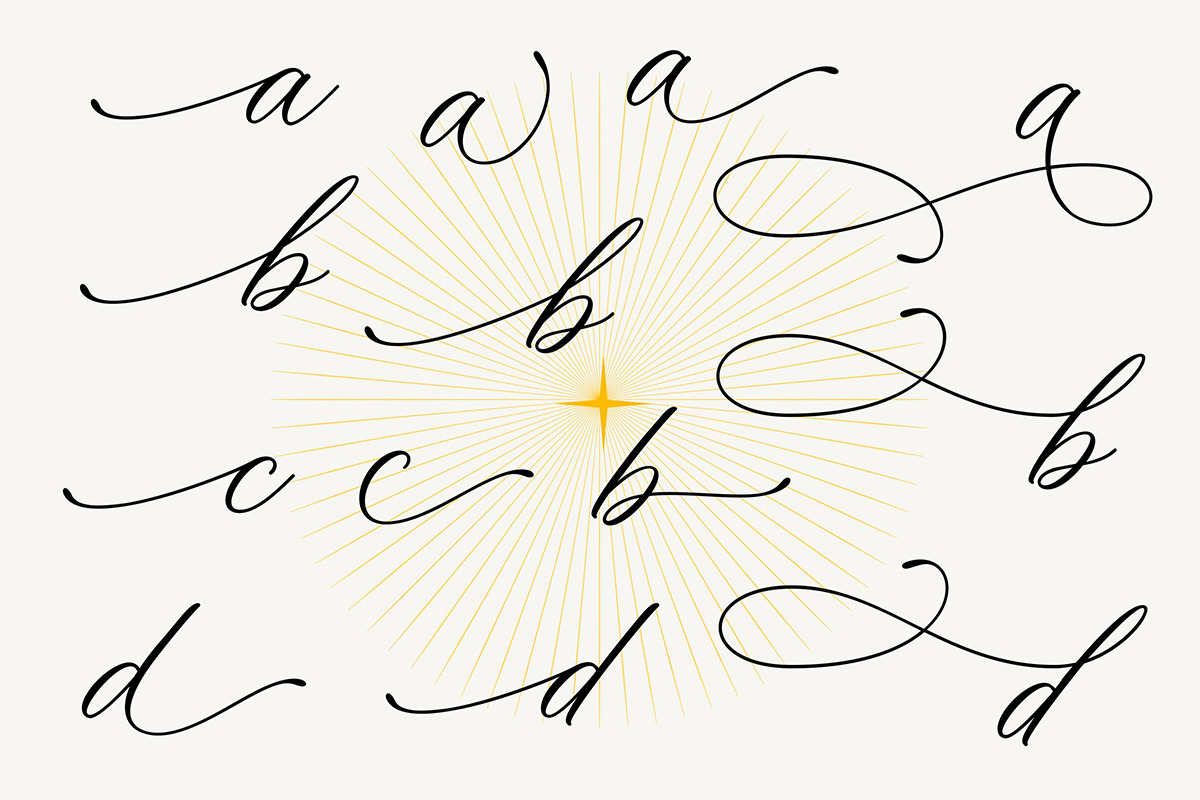 a a a a
b b b
c c b
d d d